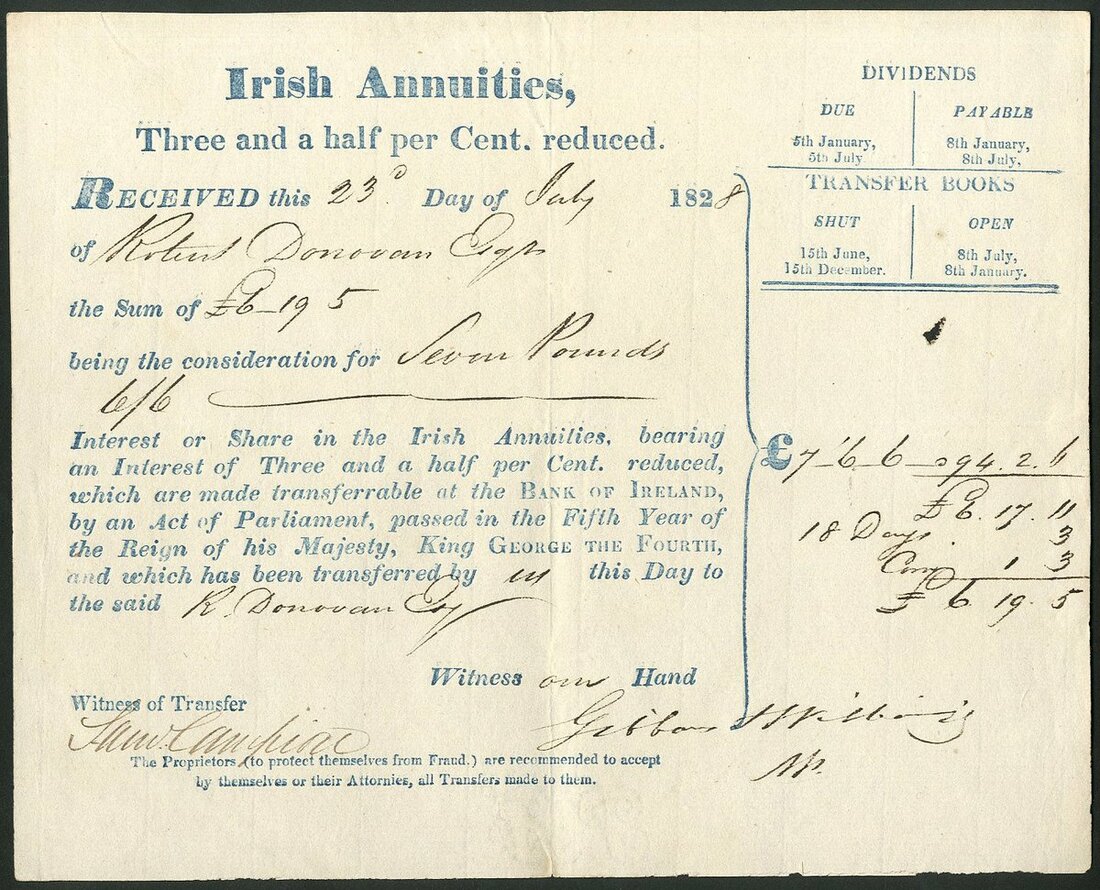 Irish Annuities,
Three and a half per Cent. reduced.
RECEIVED this 23d Day of July 1828
of Robert Donovan Esqr
the Sum of £6_19 5
being the consideration for Seven Pounds
6/6
Interest or Share in the Irish Annuities, bearing
an Interest of Three and a half per Cent. reduced,
which are made transferrable at the BANK OF IRELAND,
by an Act of Parliament, passed in the Fifth Year of
the Reign of his Majesty, King GEORGE THE FOURTH,
and which has been transferred by us this Day to
the said R. Donovan Esq
Witness our Hand
Witness of Transfer
Gibbons & Williams
The Proprietors (to protect themselves from Fraud.) are recommended to accept
by themselves or their Attornies, all Transfers made to them.
DIVIDENDS
DUE PAYABLE
5th January, 8th January,
5th July. 8th July,
TRANSFER BOOKS
SHUT OPEN
15th June, 8th July,
15th December. 8th January.
£7_6_6_ 94.2.6
£6.17.11
18 Days. 3
Com 1 3
£6.19.5